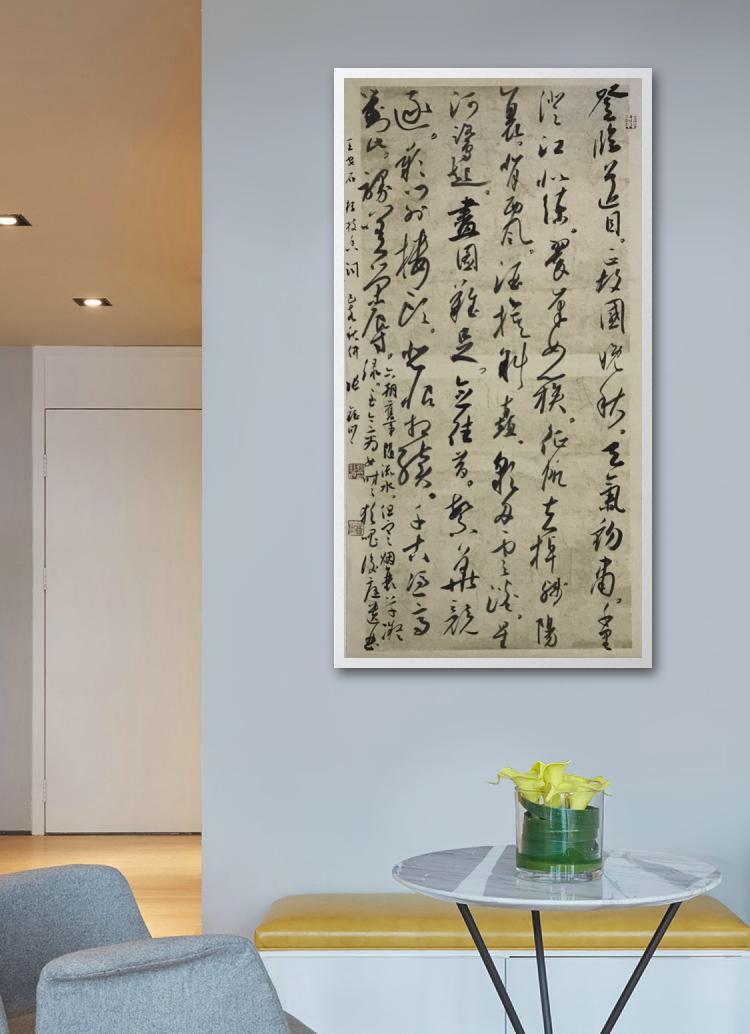 登臨送目。正故國晚秋。天氣初肅。千里
澄江似練。翠峰如簇。征帆去棹殘陽
裏。背西風。酒旗斜矗。彩舟雲淡。星
河鷺起。畫圖難足。念往昔。繁華競
逐。歎門外樓頭。悲恨相續。千古憑高
對此。謾嗟榮辱。六朝舊事隨流水。但寒烟衰草凝
緑。至今商女時々猶唱後庭遺曲
王安石桂枝香詞 秋仲